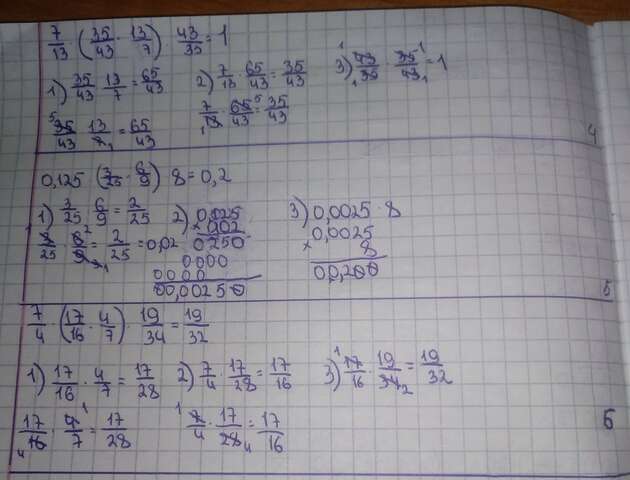 7/13 · (35/43 · 13/7) · 43/35 = 1
1) 35/43 · 13/7 = 65/43 2) 7/13 · 65/43 = 35/43 3) 43/35 · 35/43 = 1
35/43 · 13/7 = 65/43 7/13 · 65/43 = 35/43
4
0,125 · (3/25 · 6/9) · 8 = 0,2
1) 3/25 · 6/9 = 2/25 2) 0,025 3) 0,0025 · 8
3/25 · 6/9 = 2/25 = 0,02 × 0,02 0,0025
0250 × 8
0000 00,200
0000
00,00250
5
7/4 · (17/16 · 4/7) · 19/34 = 19/32
1) 17/16 · 4/7 = 17/28 2) 7/4 · 17/28 = 17/16 3) 17/16 · 19/34 = 19/32
17/16 · 4/7 = 17/28 7/4 · 17/28 = 17/16
6